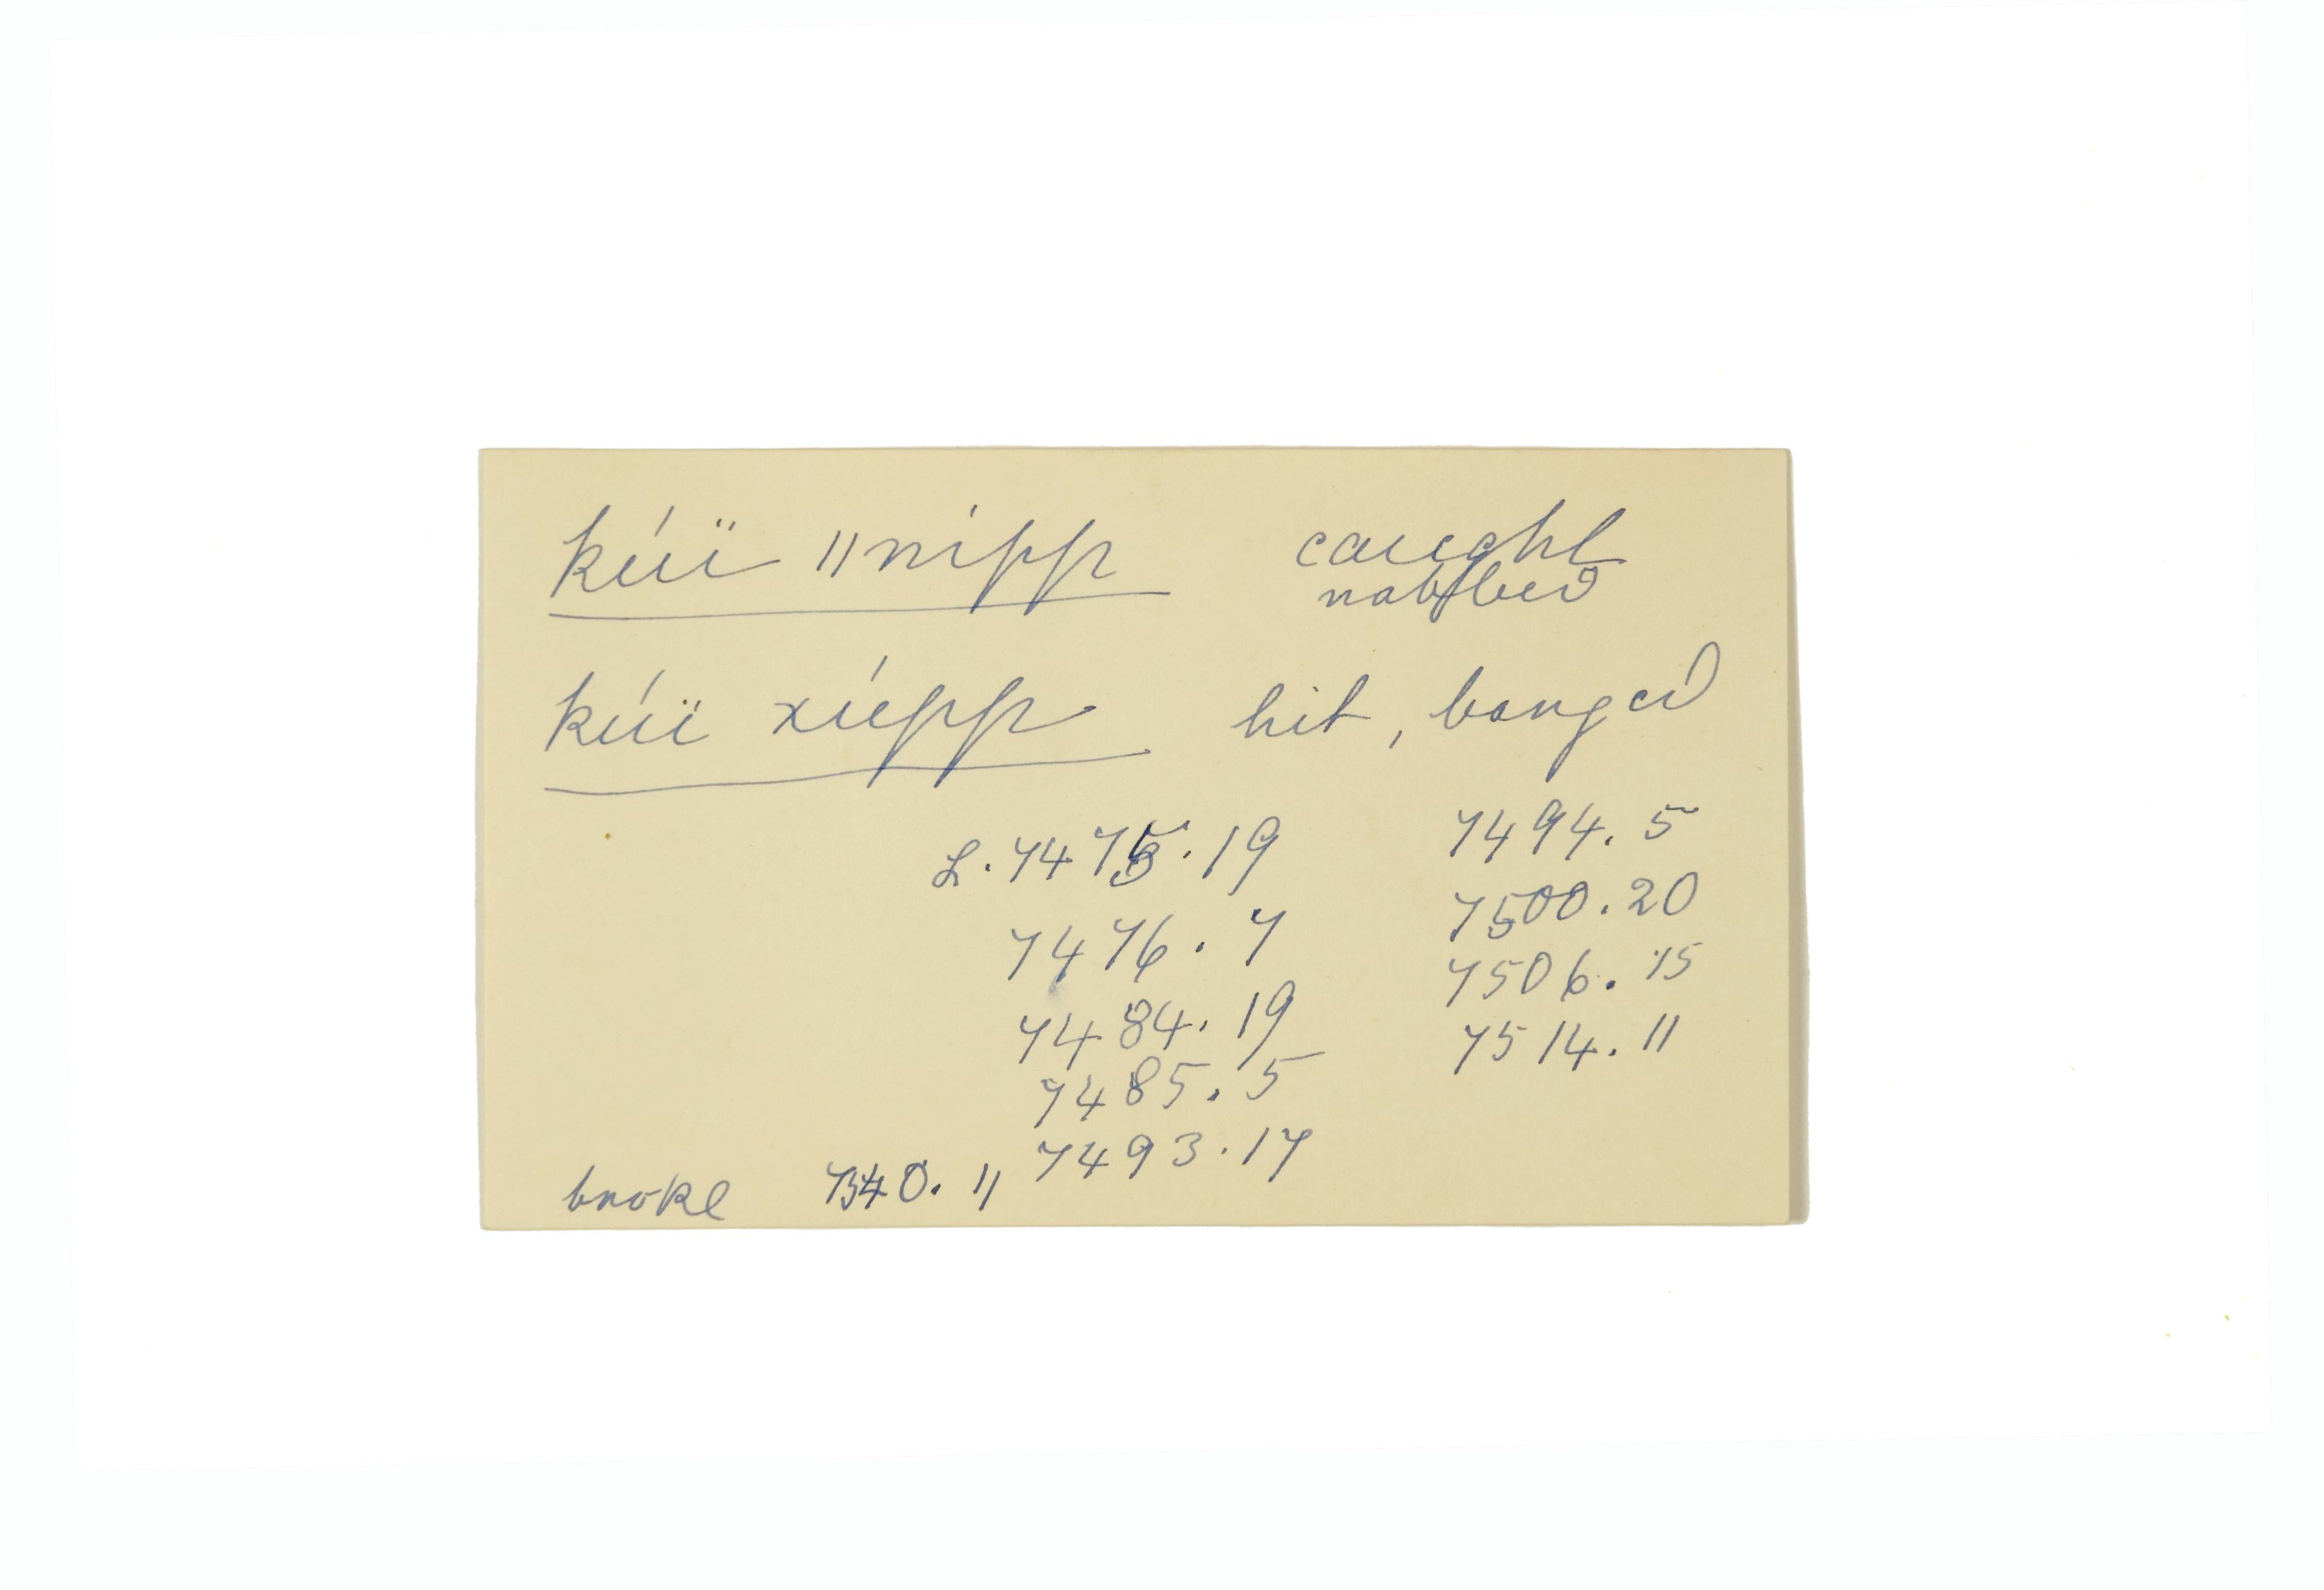 kúï ǁnipp caught
nabbed
kúï xúpp hit, banged
L. 7475.19 7494. 5
7476. 7 7500. 20
7484. 19 7506. 15
7485. 5 7514. 11
7493. 17
broke 7340. 11